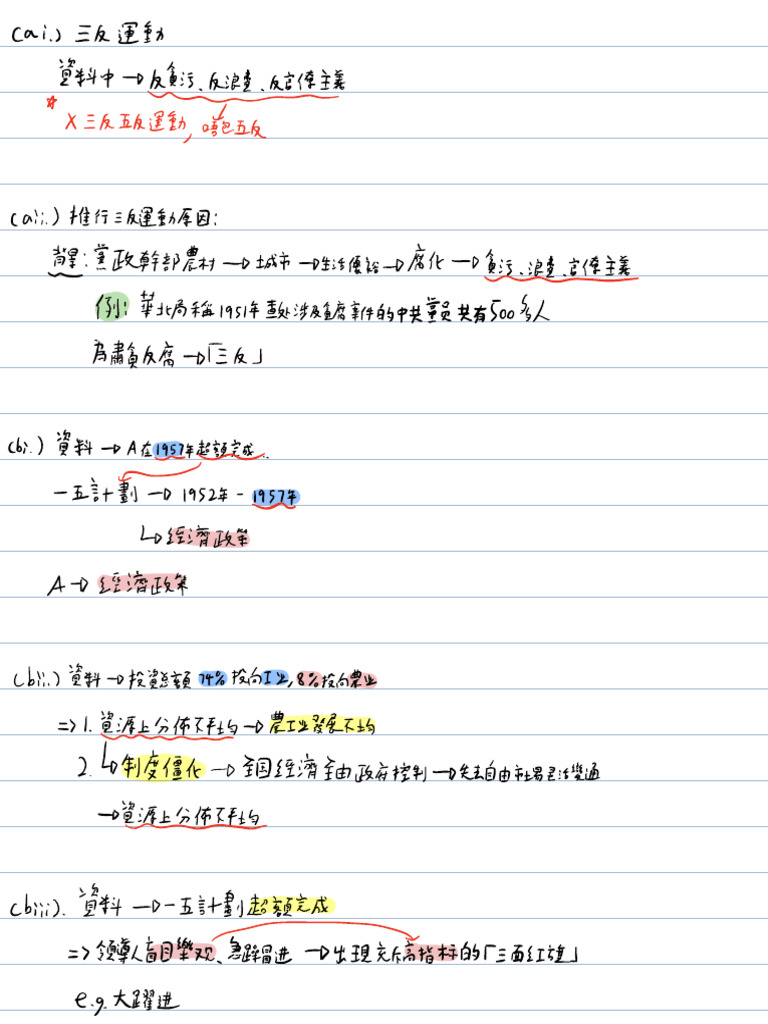 (ai.) 三反運動
資料中→反貪污、反浪費、反官僚主義
* X 三反五反運動, 唔包五反
(aii.) 推行三反運動原因:
背景: 黨政幹部農村→城市→生活優裕→腐化→貪污、浪費、官僚主義
例: 華北局稱1951年查处涉及貪腐事件的中共黨員共有500多人
為肅貪反腐→「三反」
(bi.) 資料→A在1957年超額完成..
一五計劃→1952年-1957年
↳經濟政策
A→經濟政策
(bii.) 資料→投資總額74%投向工业, 8%投向農业
=> 1. 資源上分佈不平均→農工业發展不均
2. ↳制度僵化→全国經濟全由政府控制→失去自由市場灵活變通
→資源上分佈不平均
(biii). 資料→一五計劃超額完成
=> 領導人盲目樂观、急躁冒进→出現充斥高指标的「三面紅旗」
e.g. 大躍进